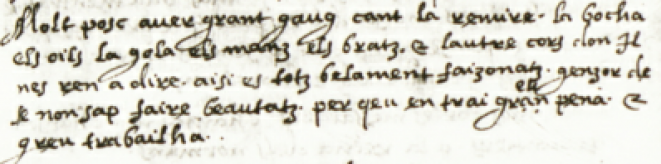 Molt posc auer grant gaug cant la remire. la bocha
els oils la gola els manz els bratz. & lautre cors don Jl
nes ren a dire. aisi es totz belament faizonatz. genzor de
se non sap faire beautatz. per qeu en trai gran pena. &
greu trabailha.